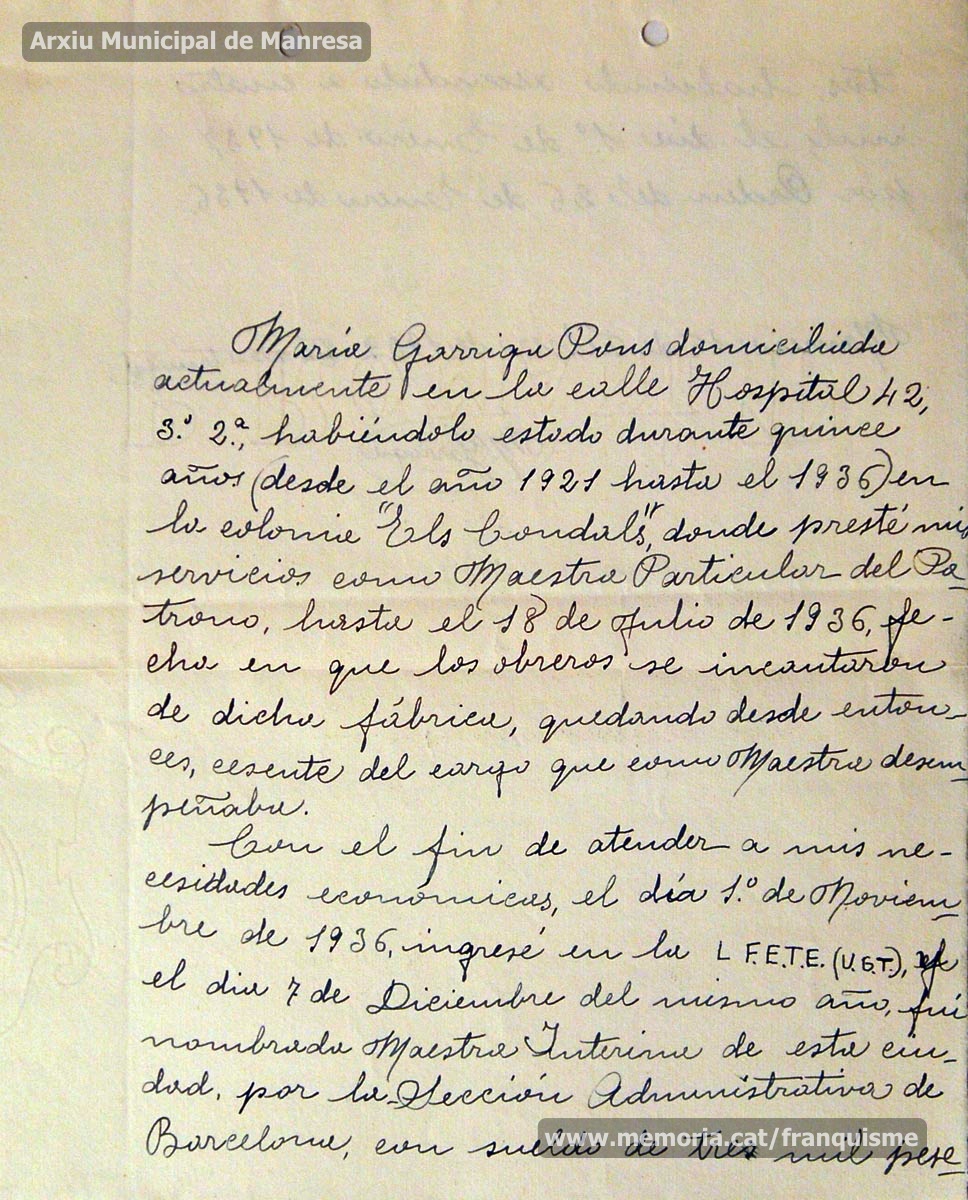 Arxiu Municipal de Manresa
María Garriga Pons domiciliada
actualmente en la calle Hospital 42,
3.º 2.ª, habiéndolo estado durante quince
años (desde el año 1921 hasta el 1936) en
la colonia "Els Condals", donde presté mis
servicios como Maestra Particular del Pa-
trono, hasta el 18 de Julio de 1936, fe-
cha en que los obreros se incautaron
de dicha fábrica, quedando desde enton-
ces, cesente del cargo que como Maestra desem-
peñaba.
Con el fin de atender a mis ne-
cesidades económicas, el día 1.º de Noviem-
bre de 1936, ingresé en la F.E.T.E. (U.G.T.), y
el dia 7 de Diciembre del mismo año, fuí
nombrada Maestra Interina de esta ciu-
dad, por la Sección Administrativa de
Barcelona, con sueldo de tres mil pese-
www.memoria.cat/franquisme